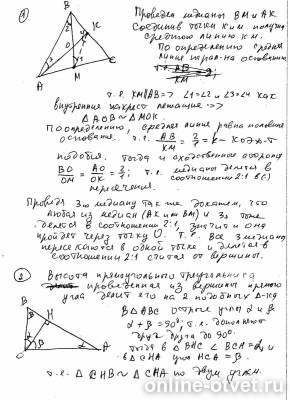 ① Проведем медианы BM и AK
B
K
Соединив точки K и M получим
среднюю линию KM.
O
По определению средняя
линия парал-на основанию
A
M
C
AB
KM
т.е. KM||AB => ∠1=∠2 и ∠3=∠4 как
внутренние накрест лежащие =>
△AOB ~ △MOK.
По определению, средняя линия равна половине
основания. т.е. AB/KM = 2/1 = k - коэф-т
подобия. Тогда и сходственные стороны
BO/OM = AO/OK = 2/1; т.е. медианы делятся в
соотношении 2:1 в (·)
пересечения.
Проведя 3ю медиану так же докажем, что
любая из медиан (AK или BM) и 3я тоже
делятся в соотношении 2:1, значит и она
пройдет через точку O. Т.е. Все 3 медианы
пересекаются в одной точке и делятся в
соотношении 2:1 считая от вершины.
② Высота прямоугольного треугольника
проведенная из вершины прямого
угла делит его на 2 подобных △-ка
B
В △ABC острые углы α и β
H
α+β=90°, т.е. дополняют
друг друга до 90°.
Тогда в △BHC ∠BCH=α, и
в △CHA угол HCA=β.
C
A
т.е. △CHB ~ △CHA по двум углам.
online-otvet.ru